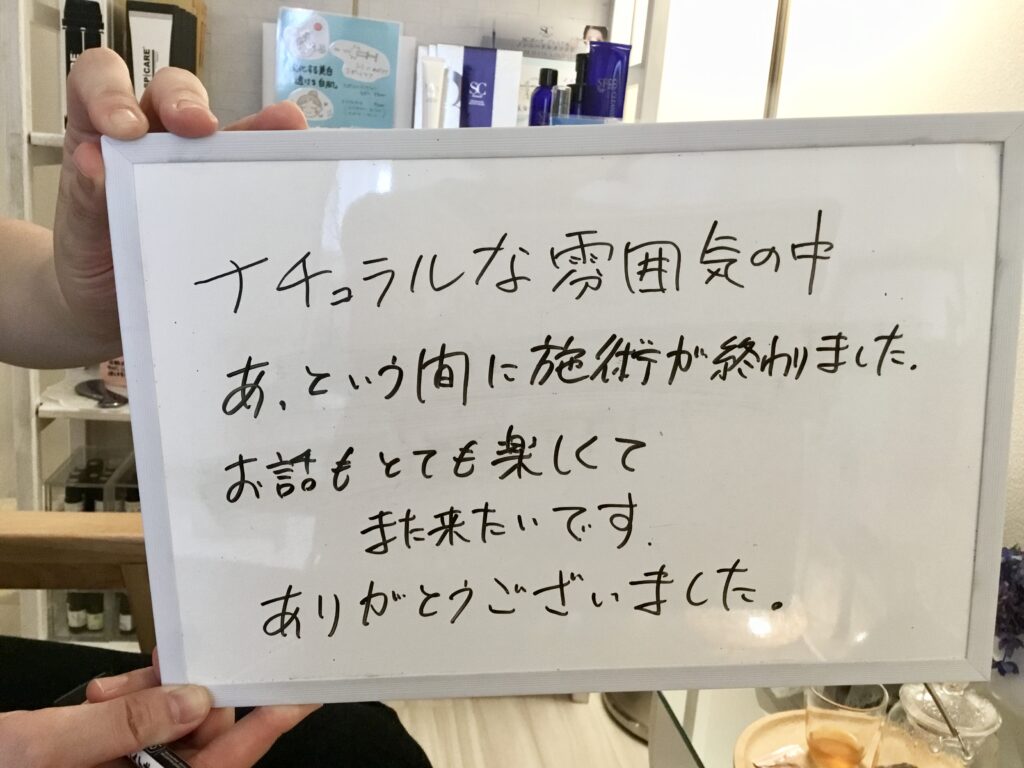 SC
ナチュラルな雰囲気の中
あ、という間に施術が終わりました.
お話もとても楽しくて
また来たいです.
ありがとうございました。